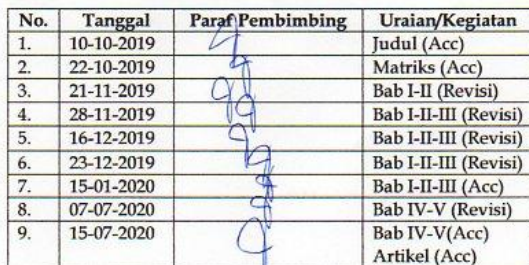 No. Tanggal Paraf Pembimbing Uraian/Kegiatan
1. 10-10-2019 Judul (Acc)
2. 22-10-2019 Matriks (Acc)
3. 21-11-2019 Bab I-II (Revisi)
4. 28-11-2019 Bab I-II-III (Revisi)
5. 16-12-2019 Bab I-II-III (Revisi)
6. 23-12-2019 Bab I-II-III (Revisi)
7. 15-01-2020 Bab I-II-III (Acc)
8. 07-07-2020 Bab IV-V (Revisi)
9. 15-07-2020 Bab IV-V(Acc)
Artikel (Acc)